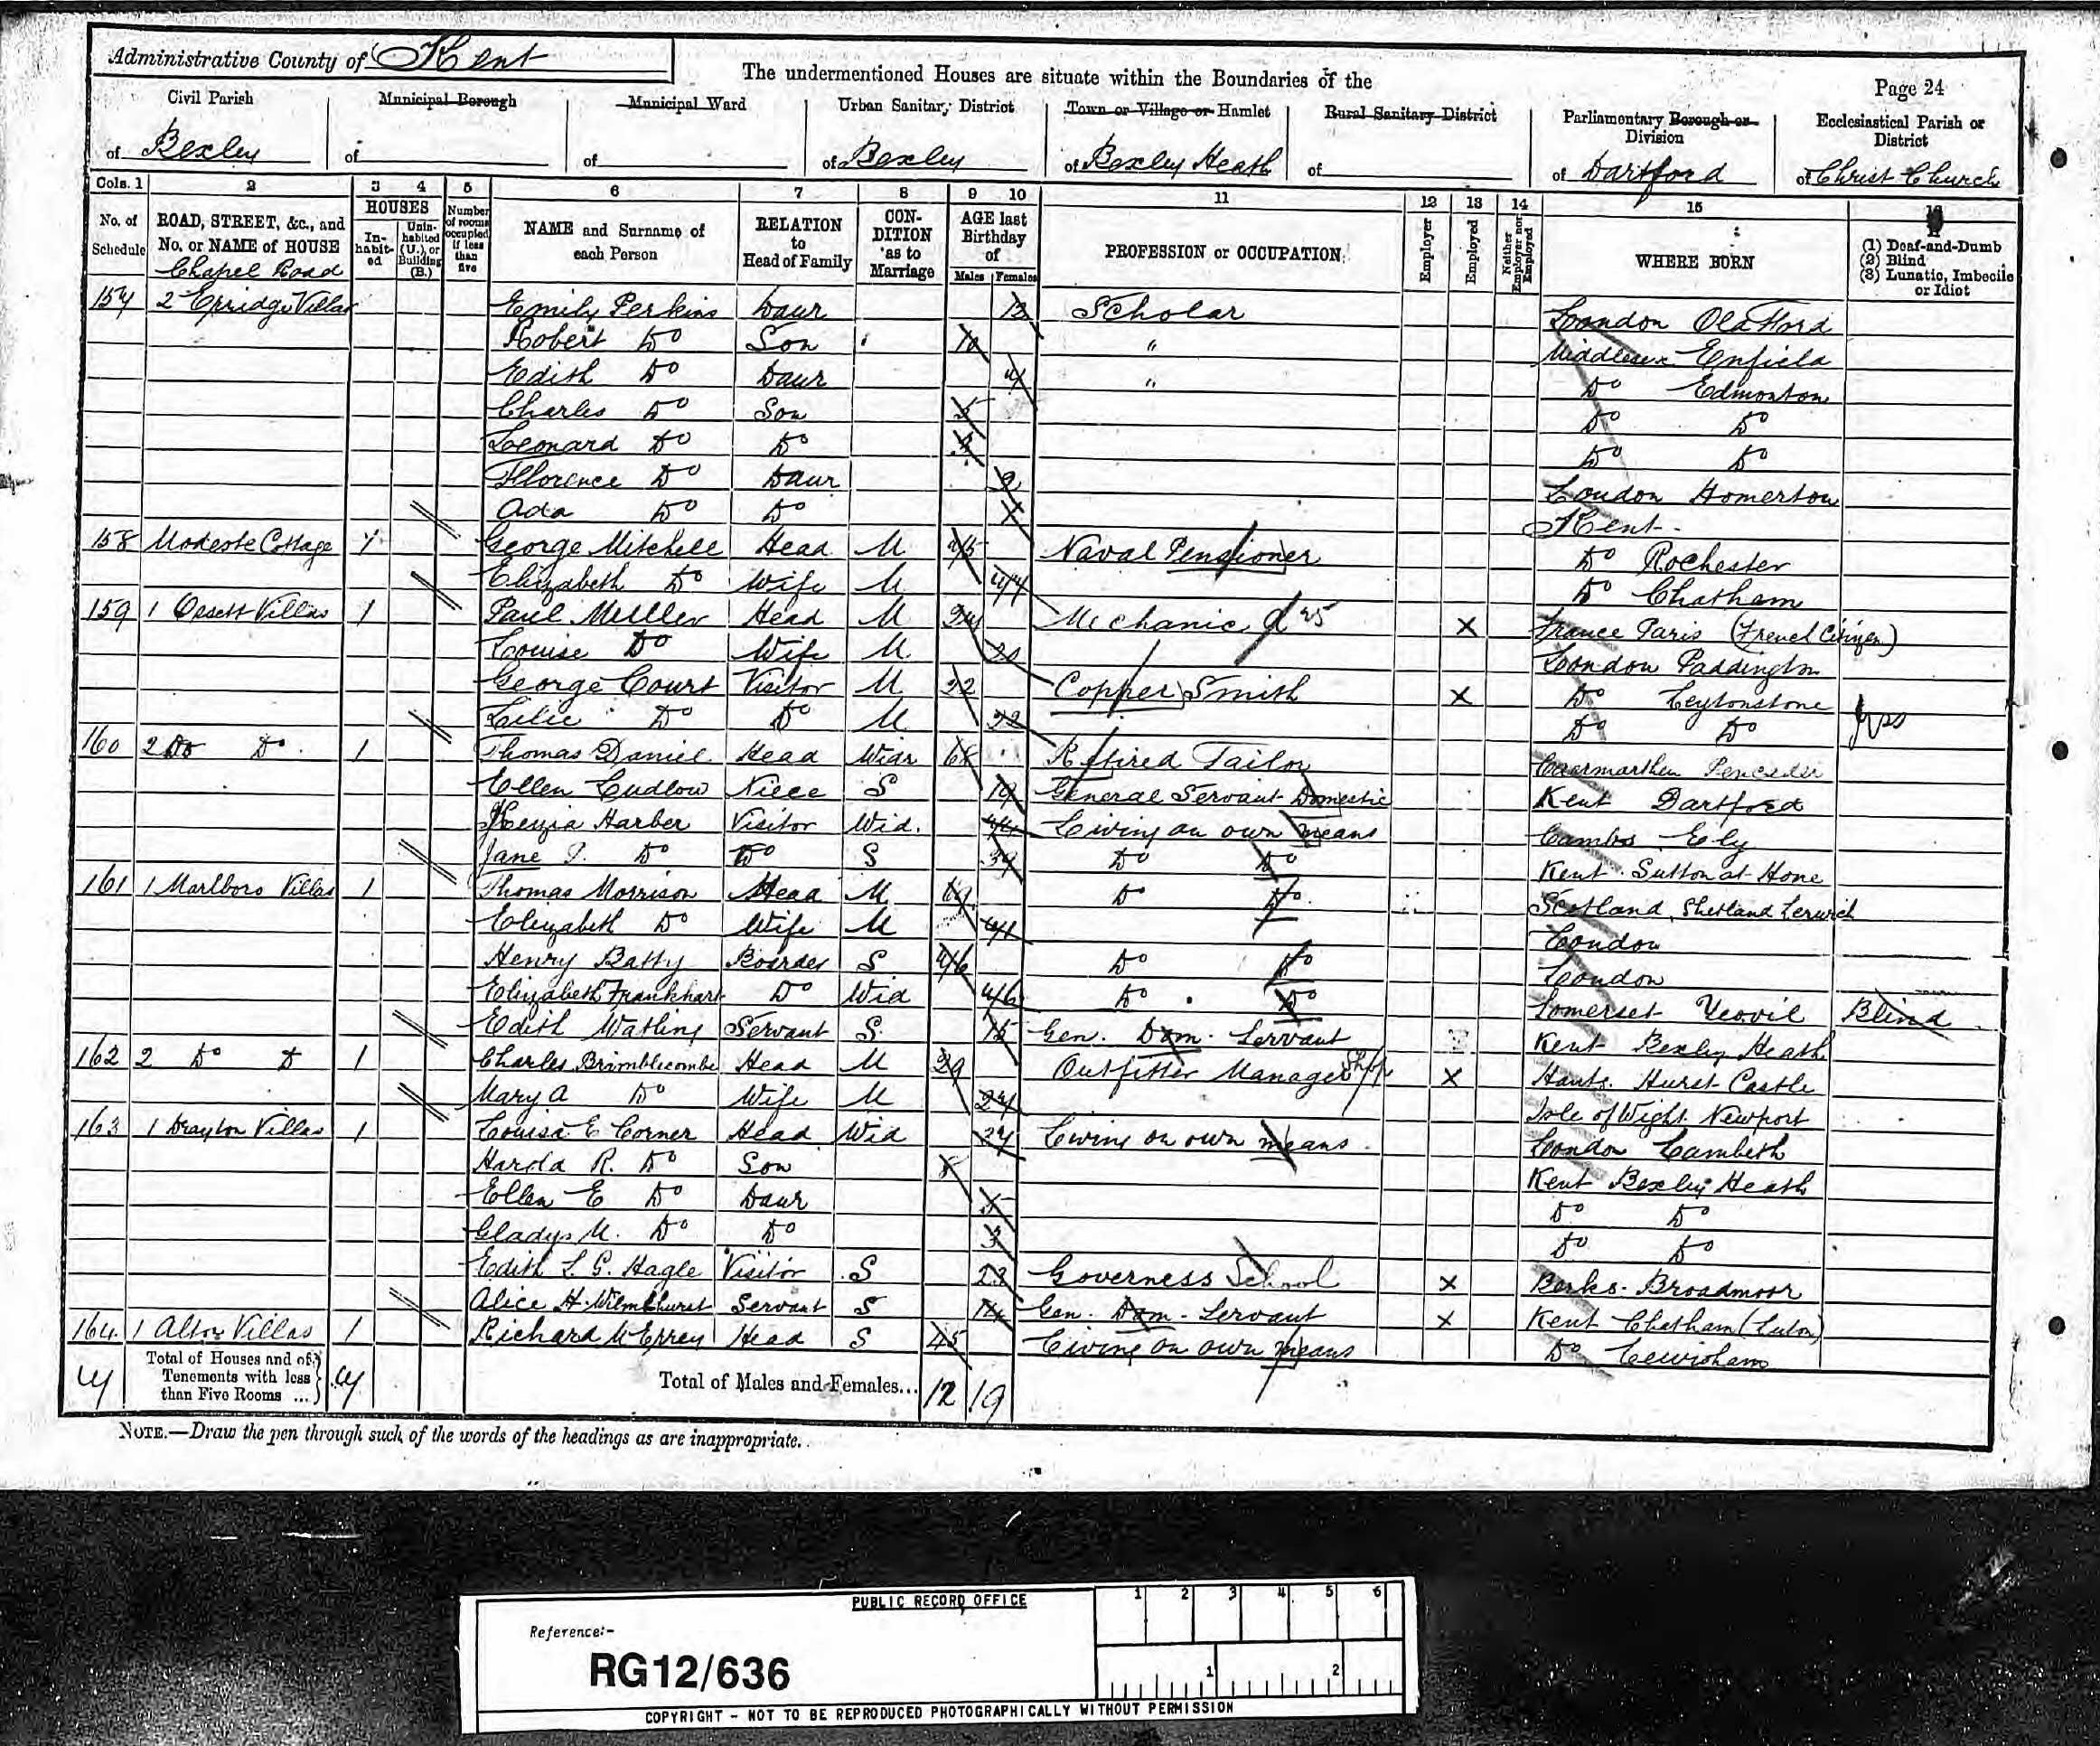 Administrative County of Kent
The undermentioned Houses are situate within the Boundaries of the
Page 24
Civil Parish of Bexley
Municipal Borough of
Municipal Ward of
Urban Sanitary District of Bexley
Town or Village or Hamlet of Bexley Heath
Rural Sanitary District of
Parliamentary Borough or Division of Dartford
Ecclesiastical Parish or District of Christ Church
Cols. 1 2 3 4 5 6 7 8 9 10 11 12 13 14 15
No. of Schedule
ROAD, STREET, &c., and No. or NAME of HOUSE
HOUSES
In-habit-ed
Unin-habited (U.), or Building (B.)
Number of rooms occupied if less than five
NAME and Surname of each Person
RELATION to Head of Family
CON-DITION as to Marriage
AGE last Birthday of
Males Females
PROFESSION or OCCUPATION
Employer
Employed
Neither Employer nor Employed
WHERE BORN
(1) Deaf-and-Dumb
(2) Blind
(3) Lunatic, Imbecile or Idiot
Chapel Road
157 2 Villas Emily Perkins Daur 13 Scholar London Old Ford
Robert Do Son 10 " Middlesex Enfield
Edith Do Daur " Do Edmonton
Charles Do Son 5 Do Do
Leonard Do Do Do Do
Florence Do Daur 2 London Homerton
Ada Do Do Kent
158 Modeste Cottage 1 George Mitchell Head M 45 Naval Pensioner Do Rochester
Elizabeth Do Wife M 44 Do Chatham
159 1 Orsett Villas 1 Paul Muller Head M 24 Mechanic X France Paris (French Citizen)
Louise Do Wife M 20 London Paddington
George Court Visitor M 22 Copper Smith X Do Leytonstone
Lilie Do Do M 22 Do Do
160 2 Do Do 1 Thomas Daniel Head Widr 68 Retired Tailor Caermarthen Pencader
Ellen Ludlow Niece S 19 General Servant Domestic Kent Dartford
Kezia Harber Visitor Wid. Living on own means Cambs Ely
Jane Do Do S 39 Do Do Kent Sutton at Hone
161 1 Marlboro Villas 1 Thomas Morrison Head M 69 Do Do Scotland, Shetland Lerwick
Elizabeth Do Wife M 41 London
Henry Batty Boarder S 46 Do Do London
Elizabeth Frankhart Do Wid 46 Do Do Somerset Yeovil Blind
Edith Watling Servant S 15 Gen. Dom. Servant Kent Bexley Heath
162 2 Do D 1 Charles Brimblecombe Head M 29 Outfitter Manager Shop X Hants. Hurst Castle
Mary A Do Wife M 24 Isle of Wight Newport
163 1 Drayton Villas 1 Louisa E Corner Head Wid 27 Living on own means London Lambeth
Harold R. Do Son 8 Kent Bexley Heath
Ellen E Do Daur 5 Do Do
Gladys M. Do Do 3 Do Do
Edith L. G. Hagle Visitor S 23 Governess School X Berks. Broadmoor
Alice H. Wilmshurst Servant S 14 Gen. Dom. Servant X Kent Chatham (Luton)
164 1 Alton Villas 1 Richard Head S 45 Living on own means Do Lewisham
Total of Houses and of Tenements with less than Five Rooms ...
Total of Males and Females... 12 19
NOTE.—Draw the pen through such of the words of the headings as are inappropriate.
PUBLIC RECORD OFFICE
1 2 3 4 5 6
Reference:-
RG12/636
1 2
COPYRIGHT - NOT TO BE REPRODUCED PHOTOGRAPHICALLY WITHOUT PERMISSION